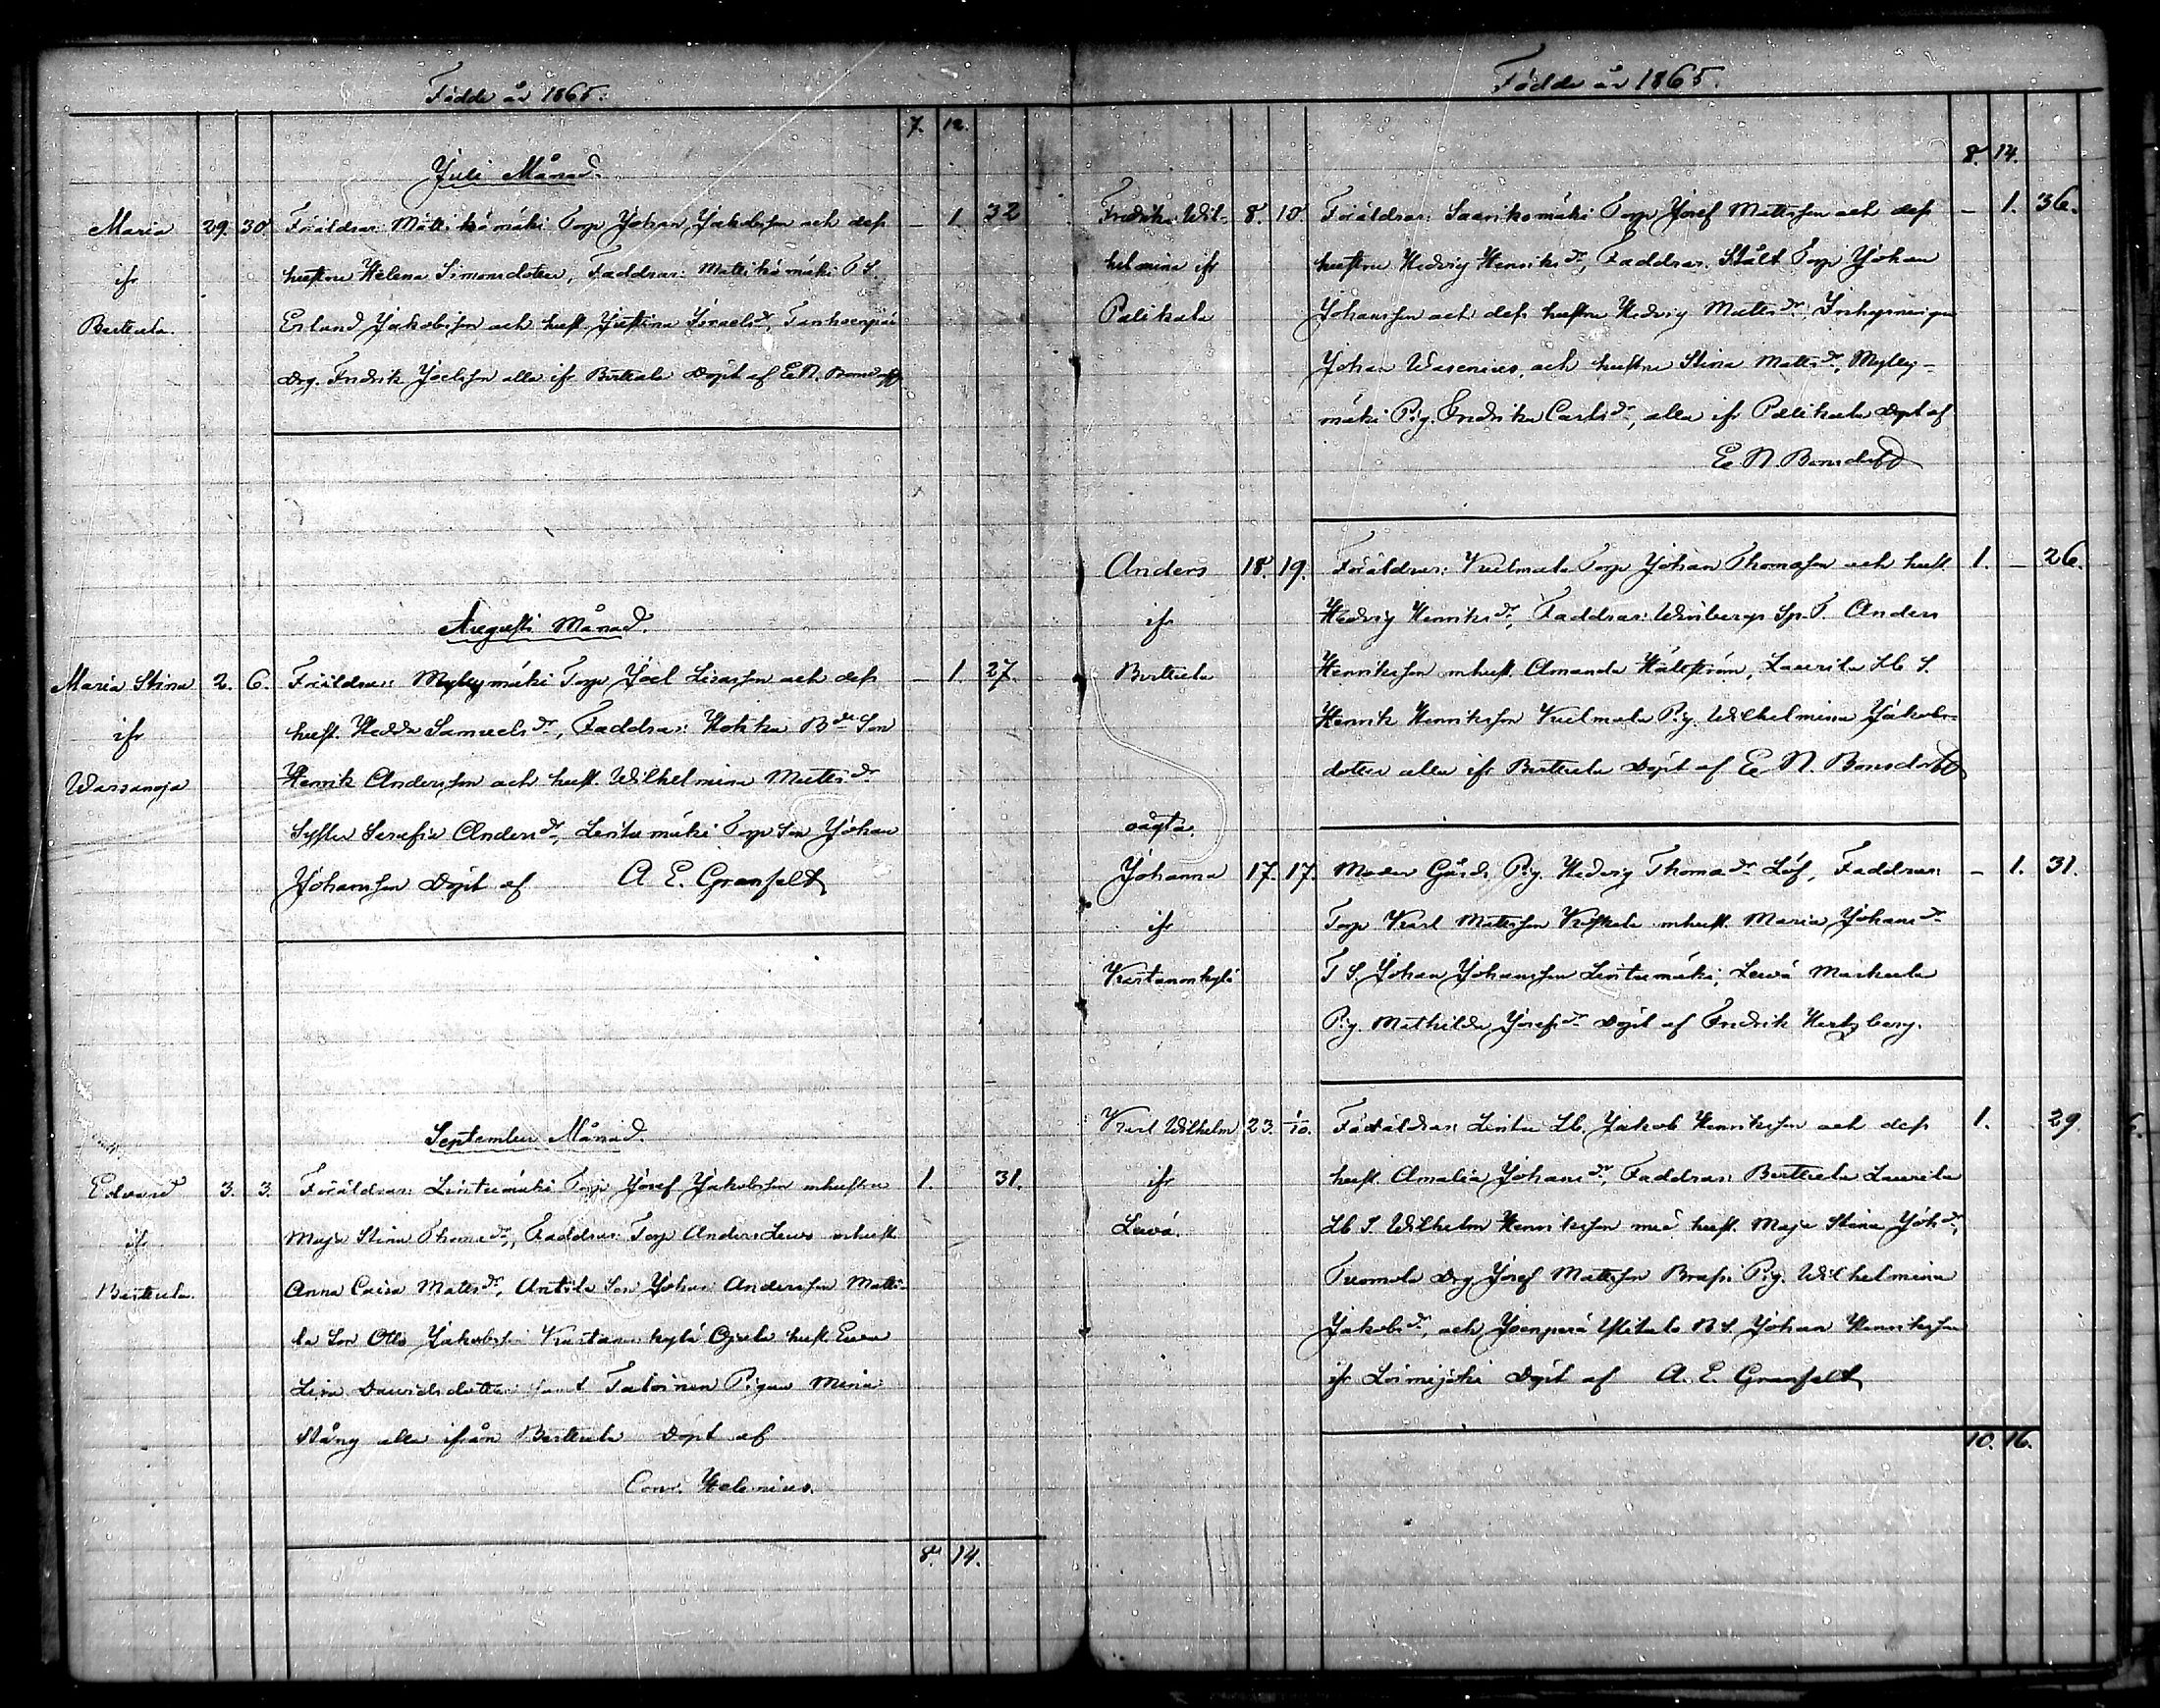 Födde år 1865.
7. 12.
Juli Månad.
Maria 29. 30. Föräldrar: Mattikömäki Torp Johan Jakobsson och dess — 1. 32
ifr hustru Helena Simonsdotter, Faddrar: Mattikömäki T S.
Bertula. Erland Jakobsson och hust. Justina Israelsdr, Tanhuenpää
Drg. Fredrik Joelsson alla ifr Bertula Döpt af E. N. Bonsdorff
Augusti Månad.
Maria Stina 2. 6. Föräldrar: Myllymäki Torp Joel Lisasson och dess — 1. 27.
ifr hust. Hedda Samuelsdr, Faddrar: Hokka Bde Son
Warsanoja Henrik Andersson och hust. Wilhelmina Mattsdr
Syster Serafia Andersdr, Lintumäki Torp Son Johan
Johansson Döpt af A. E. Granfelt
September Månad.
Edvard 3. 3. Föräldrar: Lintumäki Torp Josef Jakobsson mhustru 1. 31.
ifr Maja Stina Thomasdr, Faddrar: Torp Anders Leus mhust
Bertula. Anna Caisa Mattsdr, Antila Son Johan Andersson Matti-
la Son Otto Jakobsson Kartanonkylä Ojala hust. Eva
Lisa Davidsdotter samt Taloinen Pigan Mina
Stång alla ifrån Bertula Döpt af
Conr. Helenius.
8. 14.
Födde år 1865.
8. 14.
Fredrika Wil- 8. 10. Föräldrar: Saarikomäki Torp Josef Mattsson och dess — 1. 36.
helmina ifr hustru Hedvig Henriksdr, Faddrar: Stålt Torp Johan
Palikala Johansson och dess hustru Hedvig Mattsdr, Inhysningen
Johan Wasenius, och hustru Stina Mattsdr, Mylly-
mäki Pig. Fredrika Carlsdr, alla ifr Palikala Döpt af
E. N. Bonsdorff
Anders 18. 19. Föräldrar: Kuilmala Torp Johan Thomasson och hust. 1. — 26.
ifr Hedvig Henriksdr, Faddrar: Winbergs Sp. T. Anders
Bertula Henriksson mhust. Amanda Hälström, Laurila Lb S.
Henrik Henriksson Kuilmala Pig. Wilhelmina Jakobs-
dotter alla ifr Bertula Döpt af E. N. Bonsdorff
oägta.
Johanna 17. 17. Moder Gårds Pig. Hedvig Thomasdr Löf, Faddrar: — 1. 31.
ifr Torp Karl Mattsson Kriskala mhust. Maria Johansdr
Kartanonkylä T S. Johan Johansson Lintumäki, Levä Markula
Pig. Mathilda Josefsdr Döpt af Fredrik Hertzberg.
Karl Wilhelm 23. 1/10. Föräldrar: Lintu Lb. Jakob Henriksson och dess 1. 29.
ifr hust. Amalia Johansdr, Faddrar: Bertula Laurila
Levä. Lb S. Wilhelm Henriksson med hust. Maja Stina Johdr,
Tuomola Drg Josef Mattsson Brasi Pig. Wilhelmina
Jakobsdr, och Joenperä Ylitalo N S. Johan Henriksson
ifr Loimijoki Döpt af A. E. Granfelt
10. 16.